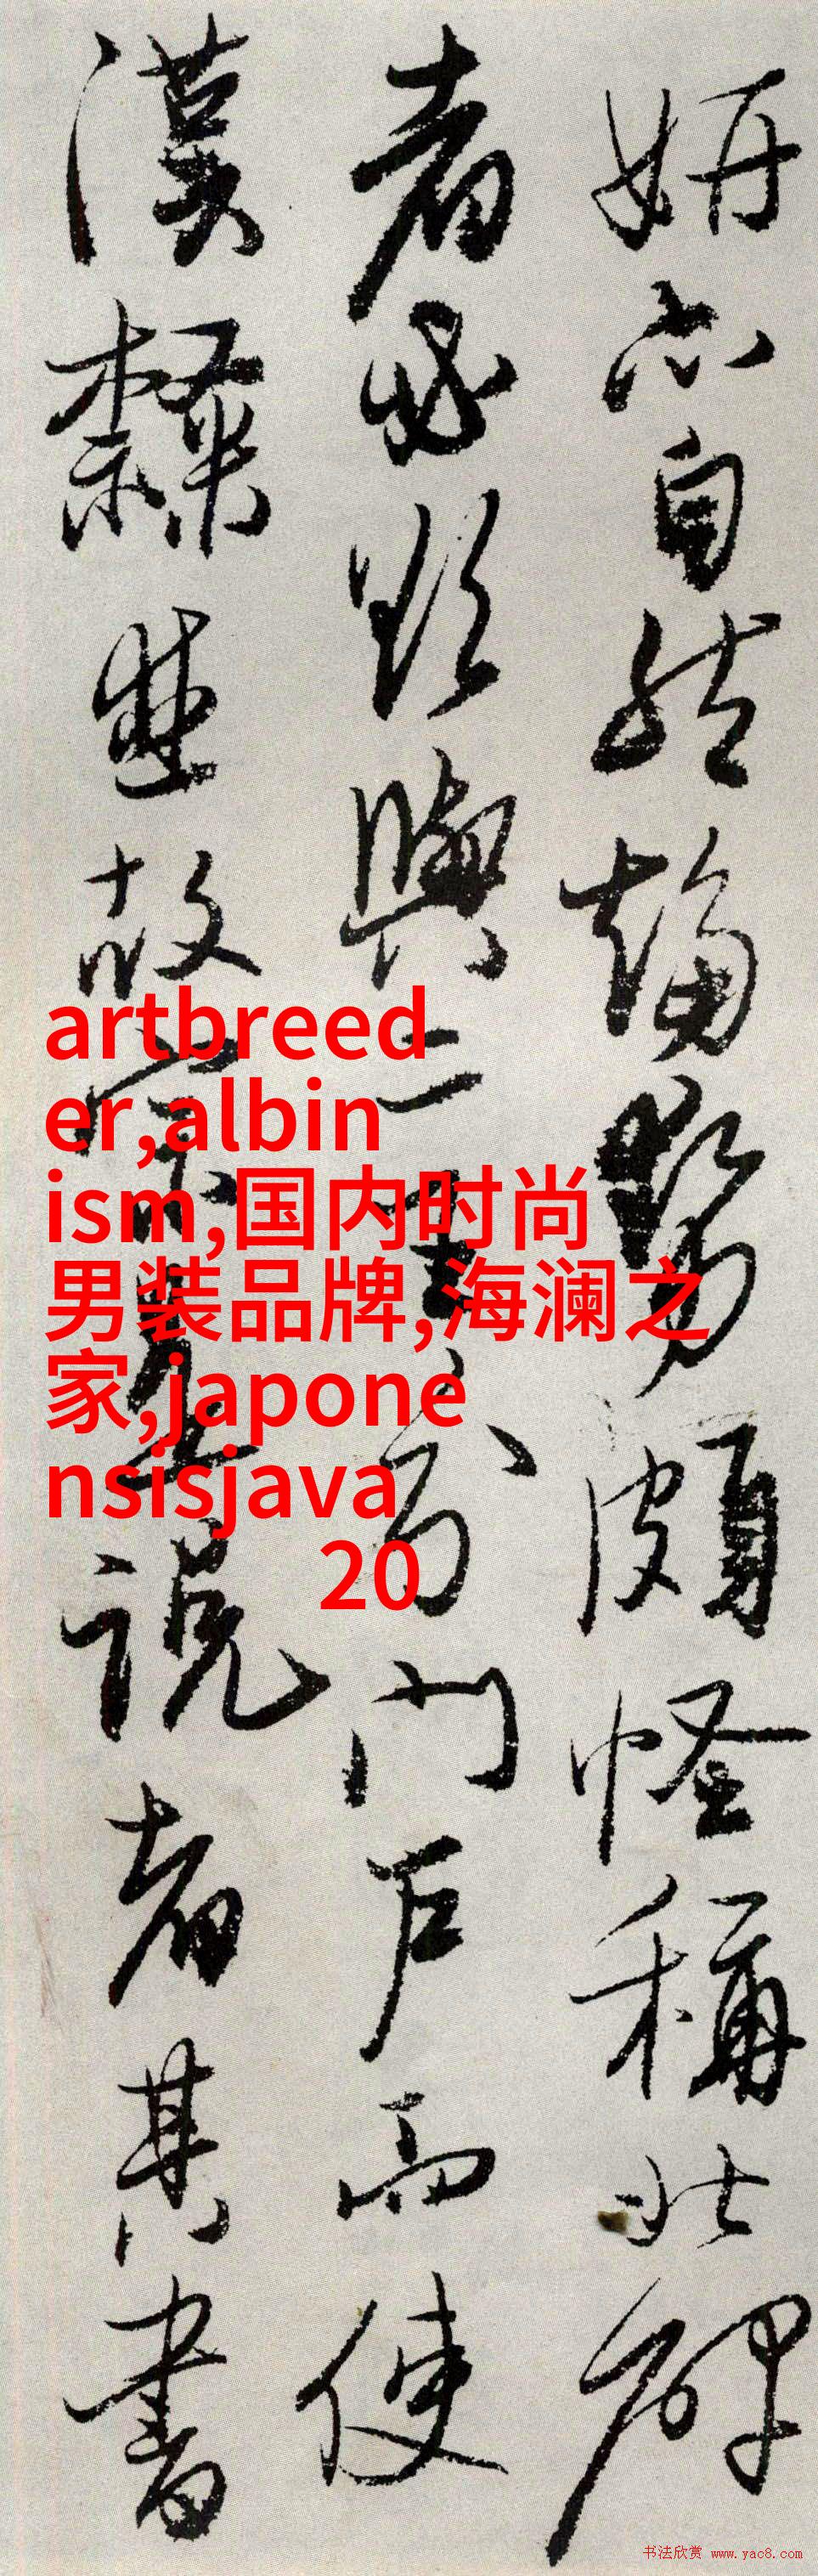 妍亦自然趨勢頗怪稱北碑
者必欲與二王分門戶而使
漢隸故宗其說者其書
artbreed
er,albin
ism,国内时尚
男装品牌,海澜之
家,japone
nsisjava
20
书法欣赏 www.yac8.com